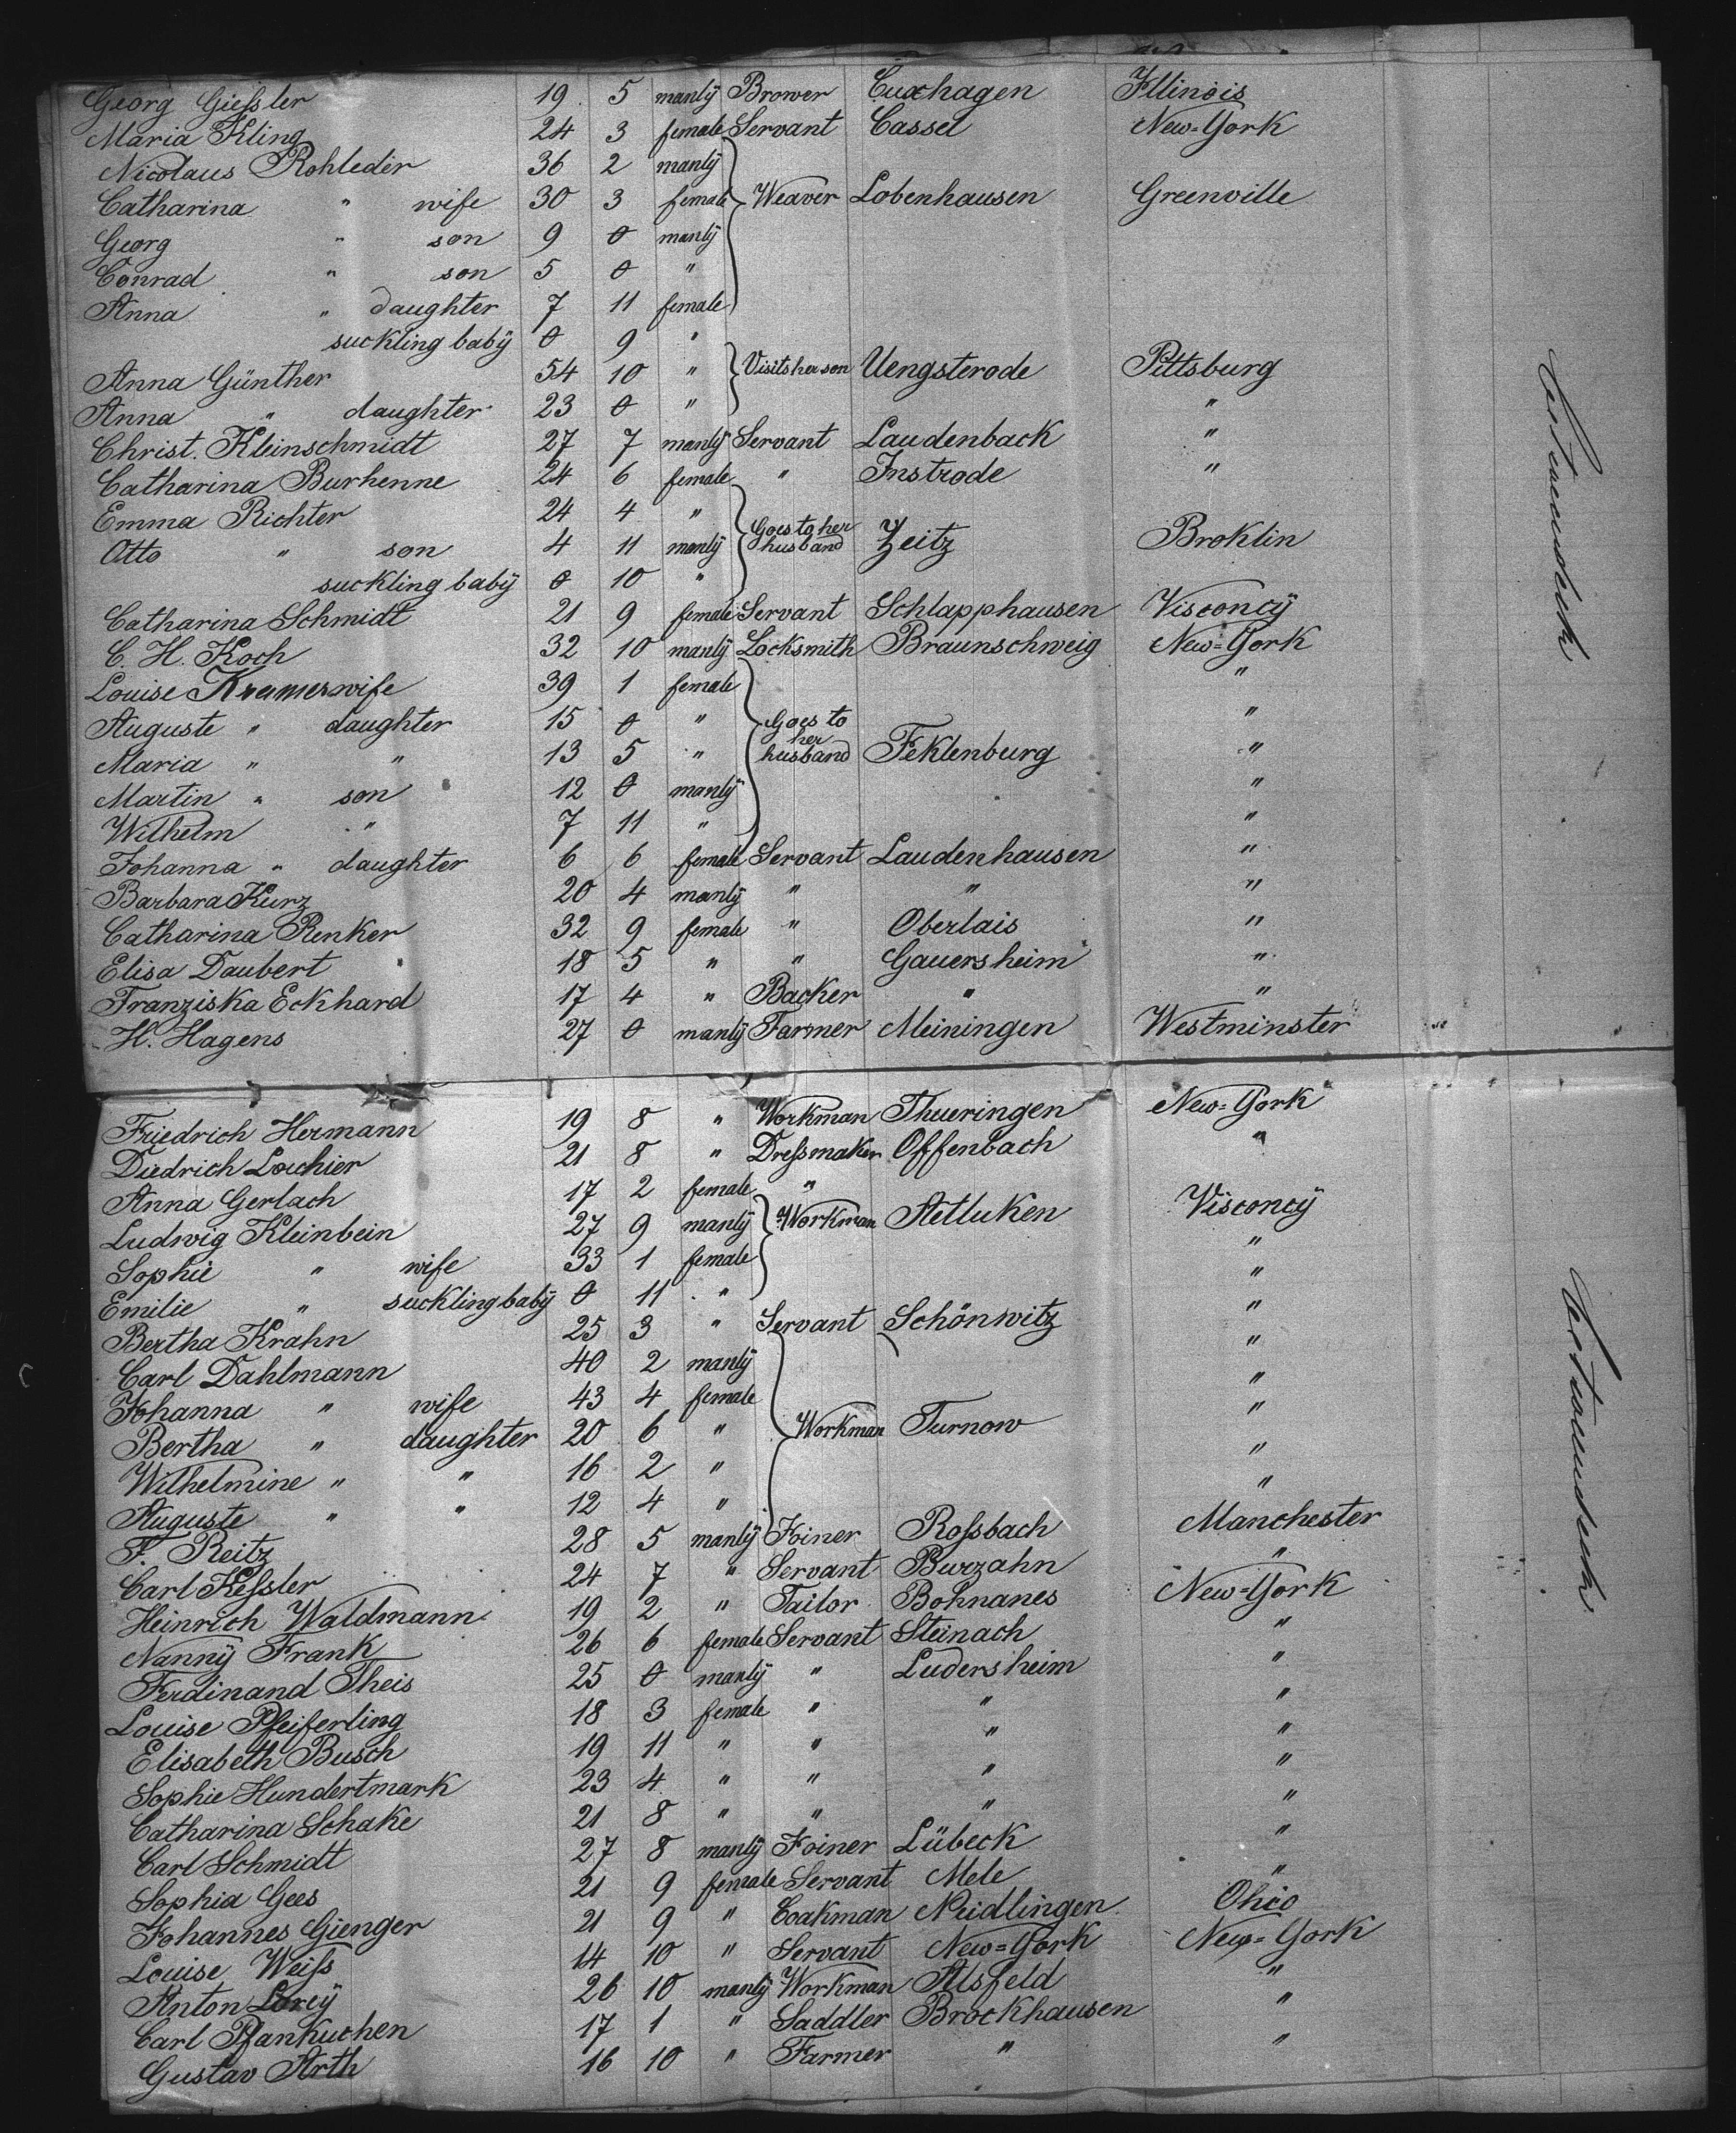 Georg Gießler 19 5 manlÿ Brower Cuxhagen Illinois
Maria Kling 24 3 female Servant Cassel New=York
Nicolaus Rohleder 36 2 manlÿ
Catharina " wife 30 3 female Weaver Lobenhausen Greenville
Georg " son 9 0 manlÿ
Conrad " son 5 0 "
Anna " daughter 7 11 female
suckling babÿ 0 9 "
Anna Günther 54 10 " Visits her son Uengsterode Pittsburg
Anna " daughter 23 0 " "
Christ. Kleinschmidt 27 7 manlÿ Servant Laudenback "
Catharina Burhenne 24 6 female " Instrode "
Emma Richter 24 4 "
Otto " son 4 11 manlÿ Goes to her husband Zeitz Broklin
suckling babÿ 0 10 "
Catharina Schmidt 21 9 female Servant Schlapphausen Visconcÿ
C. H. Koch 32 10 manlÿ Locksmith Braunschweig New=York
Louise Kramer wife 39 1 female "
Auguste " daughter 15 0 " Goes to her "
Maria " " 13 5 " husband Feklenburg "
Martin " son 12 0 manlÿ "
Wilhelm " 7 11 " "
Johanna " daughter 6 6 female Servant Laudenhausen "
Barbara Kurz 20 4 manlÿ " " "
Catharina Renker 32 9 female " Oberlais "
Elisa Daubert 18 5 " " Gauersheim "
Franziska Eckhard 17 4 " Backer " "
H. Hagens 27 0 manlÿ Farmer Meiningen Westminster
Friedrich Hermann 19 8 " Workman Thueringen New=York
Diedrich Louchier 21 8 " Dreßmaker Offenbach "
Anna Gerlach 17 2 female "
Ludwig Kleinbein 27 9 manlÿ Workman Aetluken Visconcÿ
Sophie " wife 33 1 female "
Emilie " suckling babÿ 0 11 " "
Bertha Krahn 25 3 " Servant Schönwitz "
Carl Dahlmann 40 2 manlÿ "
Johanna " wife 43 4 female "
Bertha " daughter 20 6 " Workman Turnow "
Wilhelmine " " 16 2 " "
Auguste " " 12 4 " "
F. Reitz 28 5 manlÿ Joiner Roßbach Manchester
Carl Keßler 24 7 " Servant Burzahn "
Heinrich Waldmann 19 2 " Tailor Bohnanes New=York
Nannÿ Frank 26 6 female Servant Steinach "
Ferdinand Theis 25 0 manlÿ " Ludersheim "
Louise Pfeiferling 18 3 female " " "
Elisabeth Busch 19 11 " " " "
Sophie Hundertmark 23 4 " " " "
Catharina Schake 21 8 " " " "
Carl Schmidt 27 8 manlÿ Joiner Lübeck "
Sophia Gees 21 9 female Servant Mele "
Johannes Gienger 21 9 " Coakman Neidlingen Ohio
Louise Weiß 14 10 " Servant New=York New=York
Anton Loreÿ 26 10 manlÿ Workman Alsfeld "
Carl Pfankuchen 17 1 " Saddler Brockhausen "
Gustav Arth 16 10 " Farmer " "